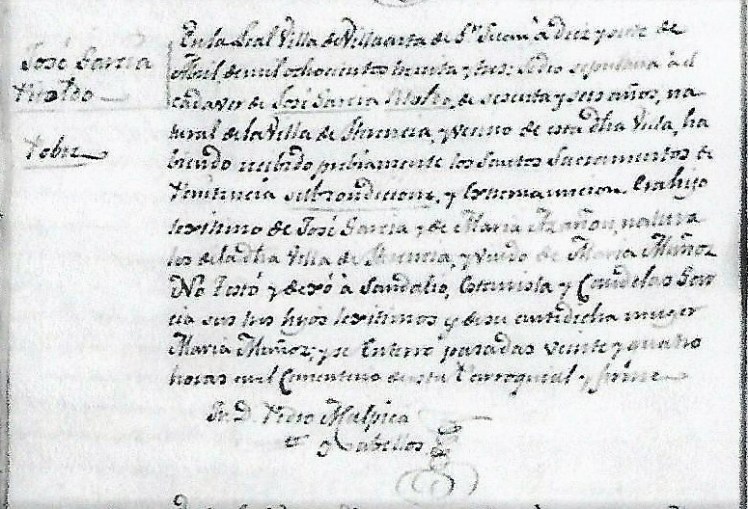 José Garcia
Pobre
En la Real Villa de Villarta de Sn. Juan à diez y siete de
Abril de mil ochocientos treinta y tres: Se dio sepultura à el
cadaver de José Garcia de sesenta y seis años, na
tural de la Villa de Herencia, y vecino de esta dha Villa, ha
biendo recibido previamente los Santos Sacramentos de
Penitencia subcondicione, y Extremauncion. Era hijo
lexitimo de José Garcia y de Maria natura
les de la dha Villa de Herencia, y viudo de Maria Muñoz
No Testó y dexó à Sandalio, y Candelas Gar
cia sus tres hijos lexitimos y de su antedicha muger
Maria Muñoz; y se Enterró pasadas veinte y quatro
horas en el Cementerio de esta Parroquial y firmé
Fr. D. Pedro Malpica
y Cabellos